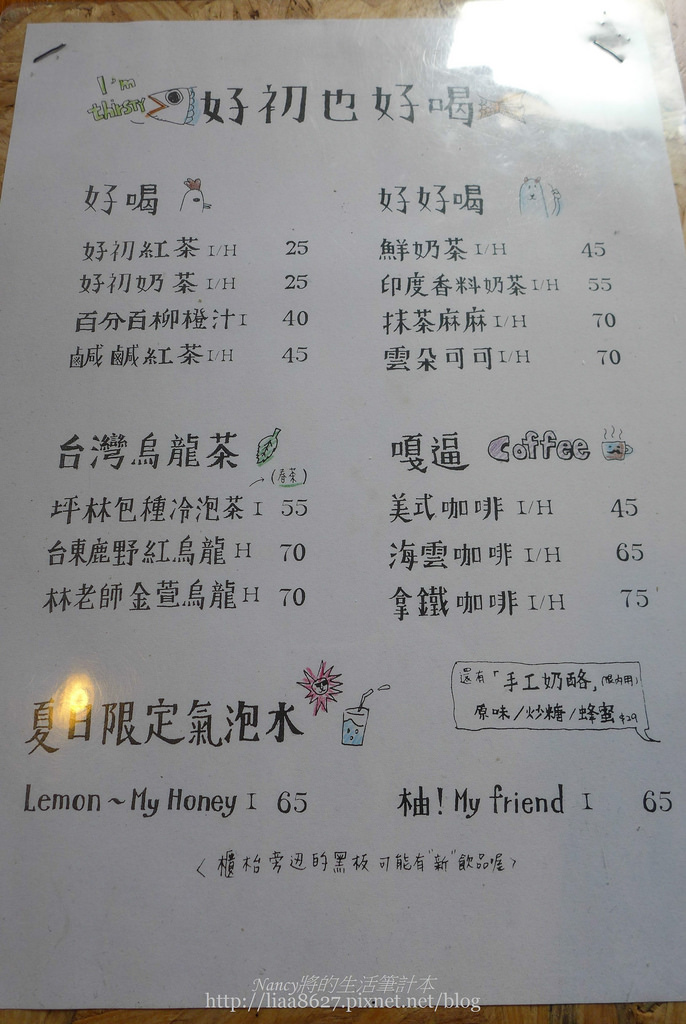 I'm
thirsty
好初也好喝
好喝
好初紅茶 I/H 25
好初奶茶 I/H 25
百分百柳橙汁 I 40
鹹鹹紅茶 I/H 45
好好喝
鮮奶茶 I/H 45
印度香料奶茶 I/H 55
抹茶麻麻 I/H 70
雲朵可可 I/H 70
台灣烏龍茶
(春茶)
坪林包種冷泡茶 I 55
台東鹿野紅烏龍 H 70
林老師金萱烏龍 H 70
嘎逼 Coffee
美式咖啡 I/H 45
海雲咖啡 I/H 65
拿鐵咖啡 I/H 75
夏日限定氣泡水
還有「手工奶酪」(限內用)
原味/炒糖/蜂蜜 $29
Lemon~My Honey I 65
柚! My friend I 65
<櫃枱旁边的黑板可能有"新"飲品喔>
Nancy將的生活筆計本
http://liaa8627.pixnet.net/blog